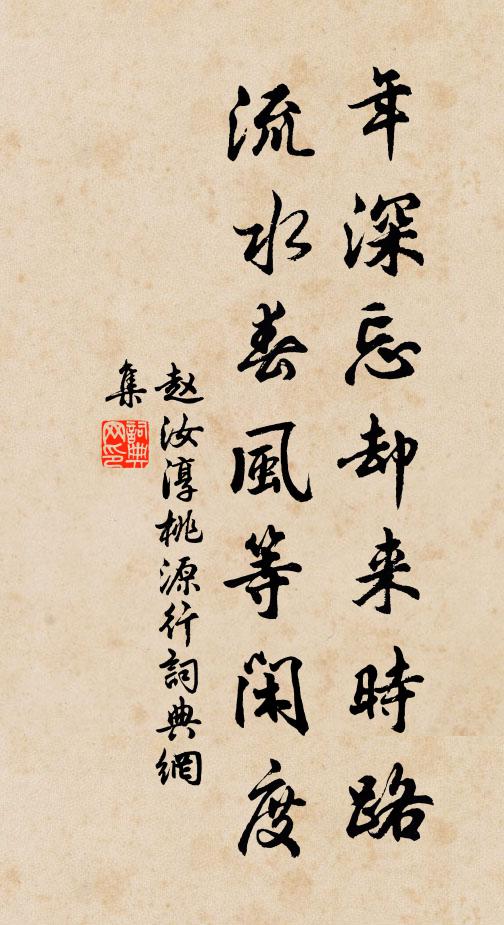 年深忘却来時路
流水春風等閑度
赵汝淳桃源行詞典網
集
詞典
网印